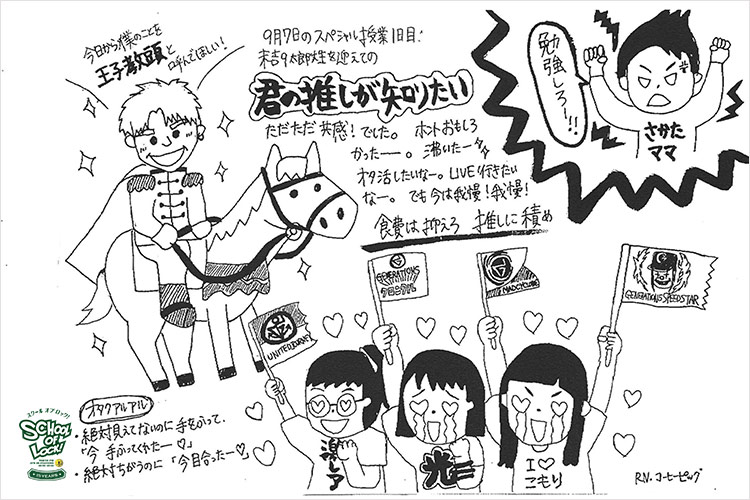 今日から僕のことを
王子教頭と
呼んでほしい!
9月7日のスペシャル授業1日目!
末吉9太郎先生を迎えての
君の推しが知りたい
ただただ共感!でした。ホントおもしろ
かったー。沸いたー
オタ活したいなー。LIVE行きたい
なー。でも今は我慢!我慢!
食費は抑えろ 推しに積め
勉強しろー!!
さかた
ママ
UNITED JOURNEY
GENERATIONS
クロニクル
MAD CYCLONE
GENERATIONS SPEEDSTAR
オタクアルアル
・絶対見えてないのに手をふって、
「今 手ふってくれたー♡」
・絶対ちがうのに「今目合ったー♡」
激レア
光二
I♡
こもり
R.N. コーヒーピッグ
スクール オブ ロック!
SCHOOL
OF
LOCK!
15 YEARS